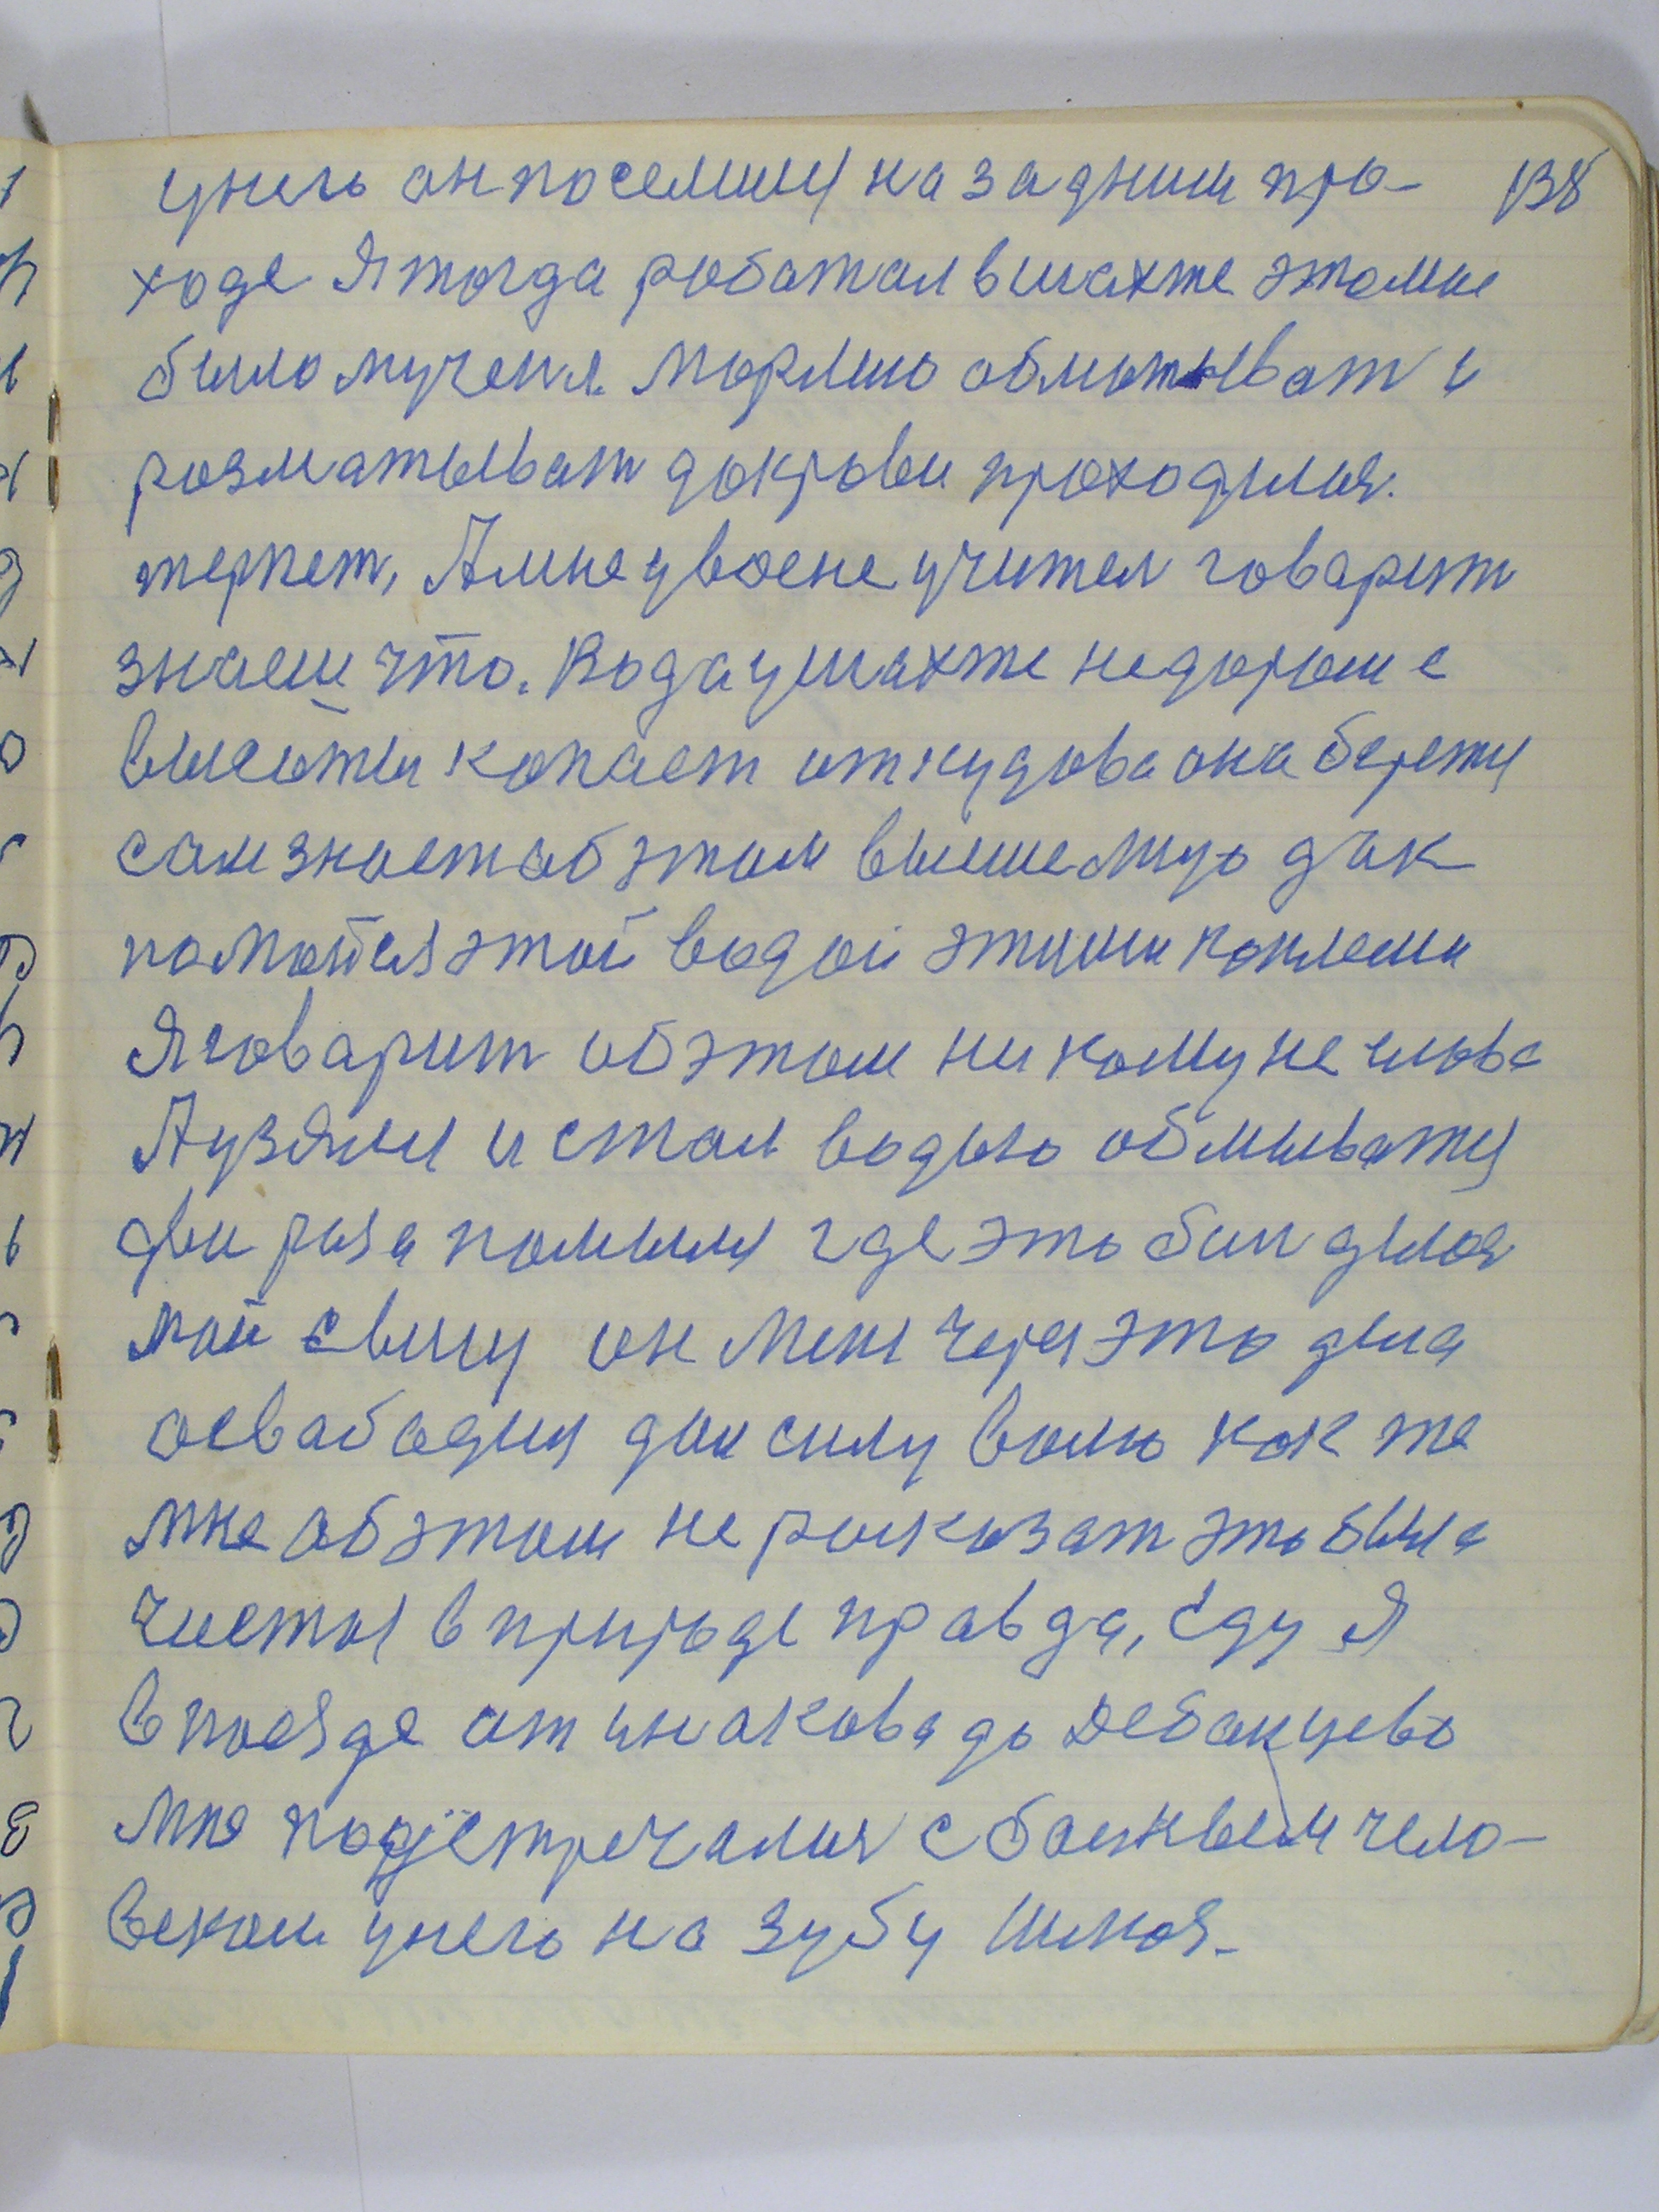 унего он поселилься на задним про- 138
ходе Я тогда работал в шахте это мне
было мученя. Марлию обматыват и
розматыват докрови проходилися.
терпет, А мне у воене учител говарит
знаеш что. Вода у шахте не дорош с
высоты копает откудова она берется
сам знает об этом вышел туо дак
помойся этой водой этими каплеми
Я говарит об этом ни кому не слова
А узяли и стал водою обмыватця
два раза помылся где это был делся
мой свищ он меня через это дела
освабадил дал силу волю как же
мне об этом не росказат это была
чистая в природе правда, Еду я
в поезде от инакова до Дебальцево
мне подстречался с больным чело-
веком унего на зубу шишоя-